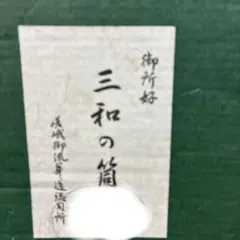 御所好
三和の筒
嵯峨御流華道総司所